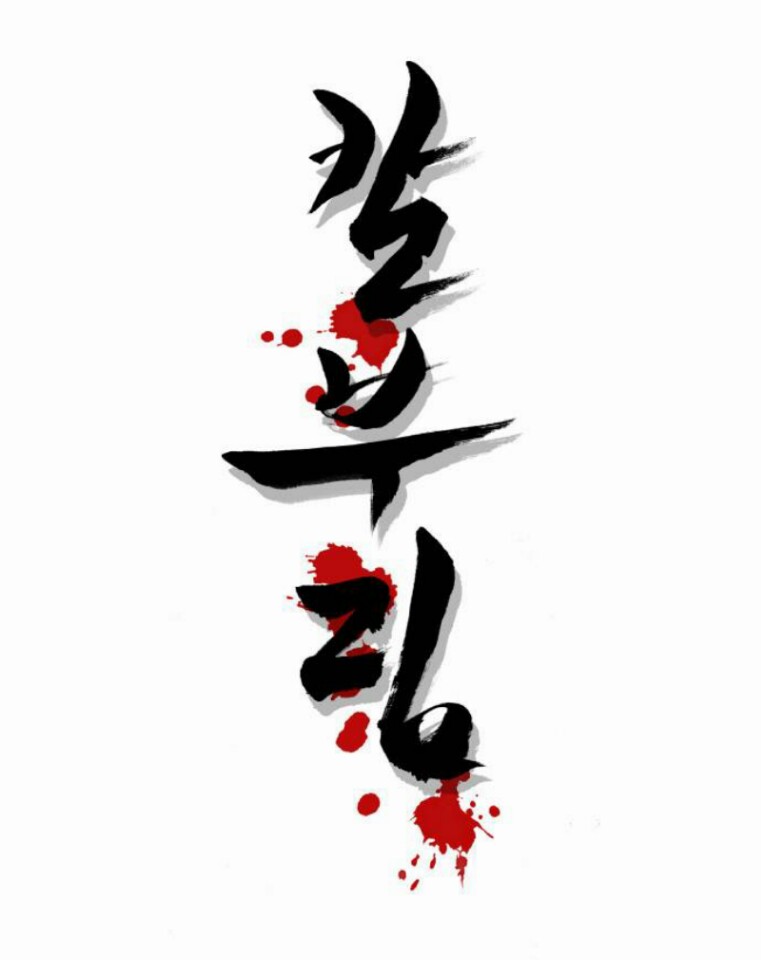 칼부림